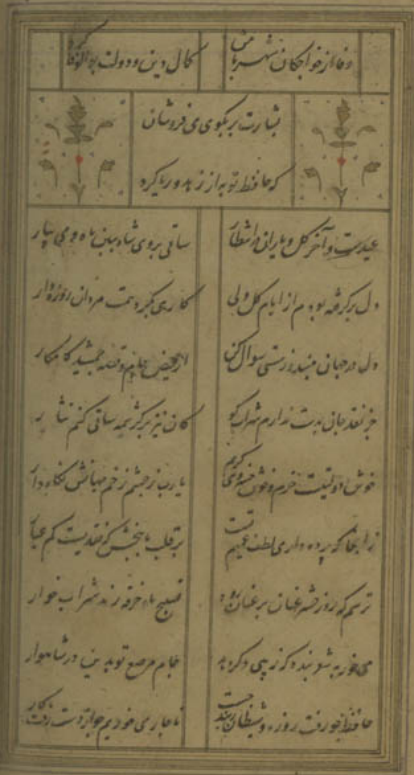 وفا از خواجگان شهر با من کمال دین و دولت بوالوفا کرد
بشارت بر بکوی می فروشان
که حافظ توبه از زهد و ریا کرد
عیدست و آخر کل و یاران در انتظار ساقی بروی شاه ببین ماه و می بیار
دل برکرفته بودم از ایام کل ولی کاری بکرد همت مردان روزه دار
دل در جهان مبند و ز مستی سوال کن از فیض جام و قصه جمشید کامکار
جز نقد جان بدست ندارم شراب کو کان نیز بر کرشمه ساقی کنم نثار
خوش دولتیست خرم و خوش خسروی کریم یارب ز چشم زخم جهانش نکاه دار
زانجا که پرده داری لطف عمیم تست بر قلب ما ببخش که نقدیست کم عیار
ترسم که روز حشر عنان بر عنان رود تسبیح ما و خرقه رند شراب خوار
می خور بشعر بنده که زیبی دکر دهد جام مرصع تو بدین در شاهوار
حافظ چو رفت روزه و ناچار می خوریم چو از دست رفت کار